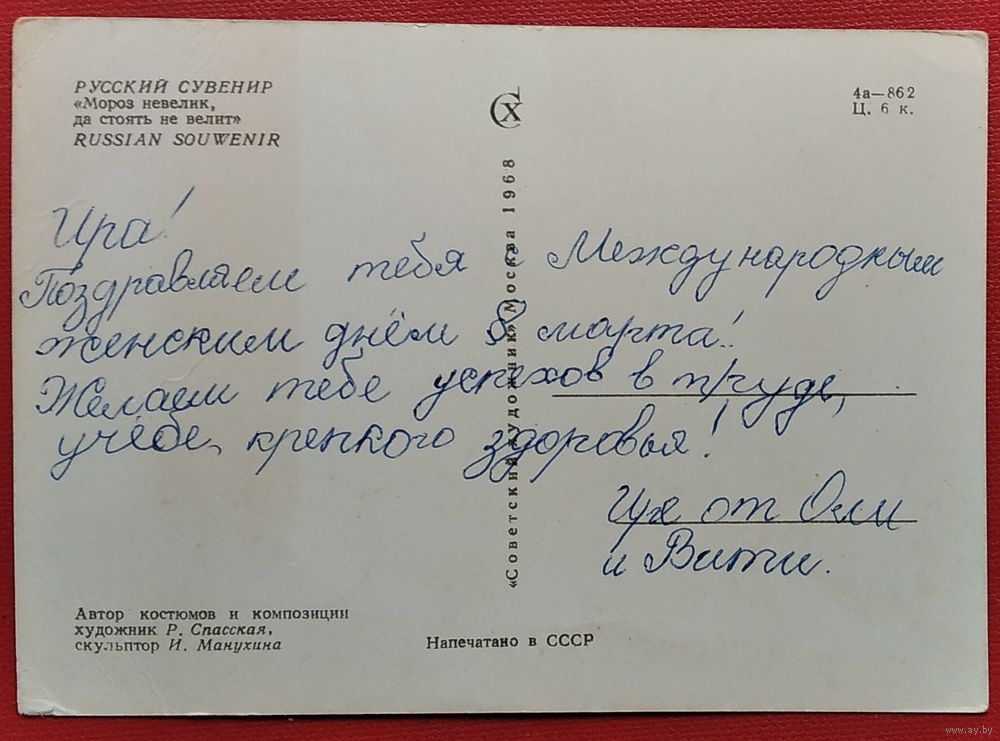 РУССКИЙ СУВЕНИР
«Мороз невелик,
да стоять не велит»
RUSSIAN SOUWENIR
СХ
4а—862
Ц. 6 к.
Ира!
Поздравляем тебя с Международным
женским днём 8 марта!
Желаем тебе успехов в труде,
учёбе, крепкого здоровья!
от Оли
и Вити.
«Советский художник» Москва 1968
Автор костюмов и композиции
художник Р. Спасская,
скульптор И. Манухина
Напечатано в СССР
www.ay.by